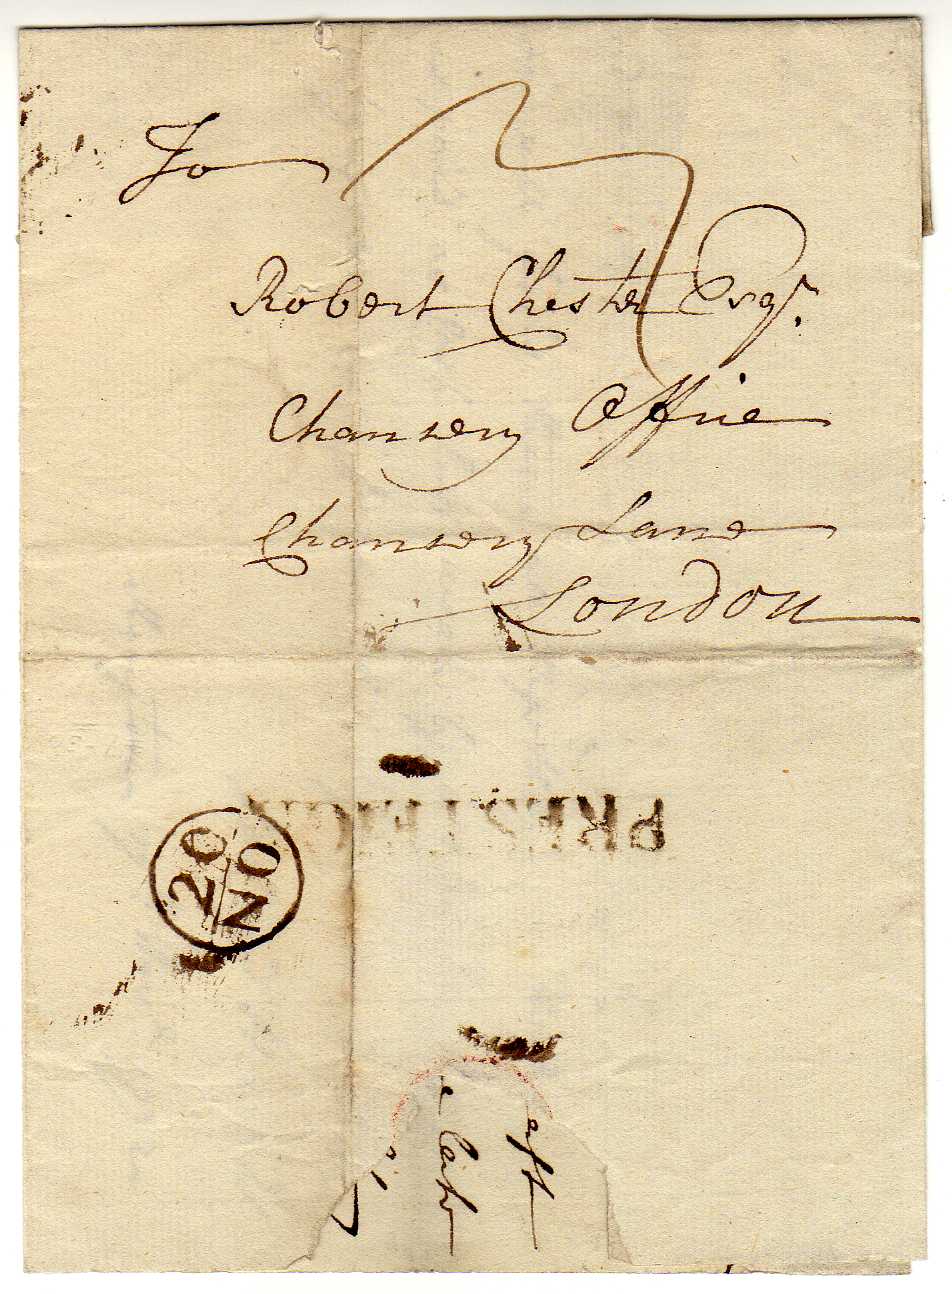 To
Robert Chester Esqr.
Chansery Office
Chansery Lane
London
PRESTEIGN
20
NO
aft